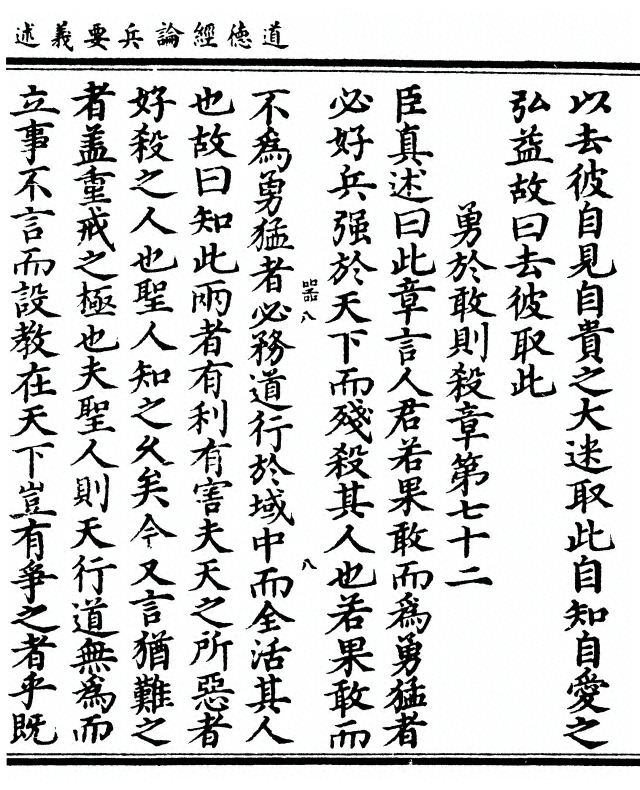 道德經論兵要義述
以去彼自見自貴之大迷取此自知自愛之
弘益故曰去彼取此
勇於敢則殺章第七十二
臣真述曰此章言人君若果敢而為勇猛者
必好兵强於天下而殘殺其人也若果敢而
器八
八
不為勇猛者必務道行於域中而全活其人
也故曰知此兩者有利有害夫天之所惡者
好殺之人也聖人知之久矣今又言猶難之
者蓋重戒之極也夫聖人則天行道無為而
立事不言而設教在天下豈有爭之者乎既